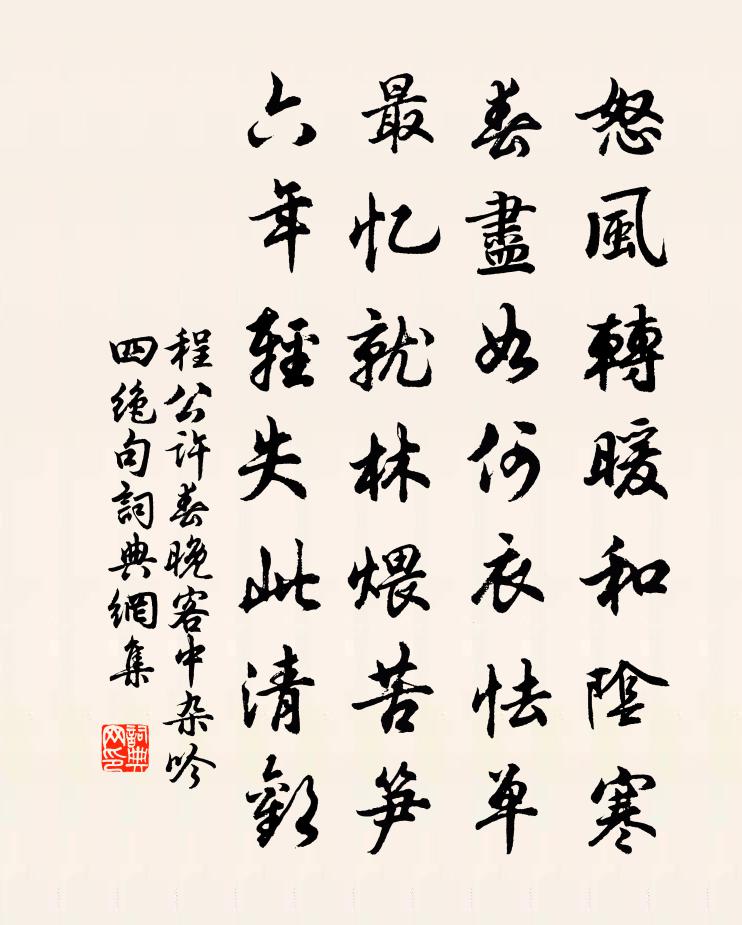 怒風轉暖和陰寒
春盡如何衣怯单
最忆就林煨苦笋
六年輕失此清歡
程公许春晚客中杂吟
四絶句詞典網集
詞典网印